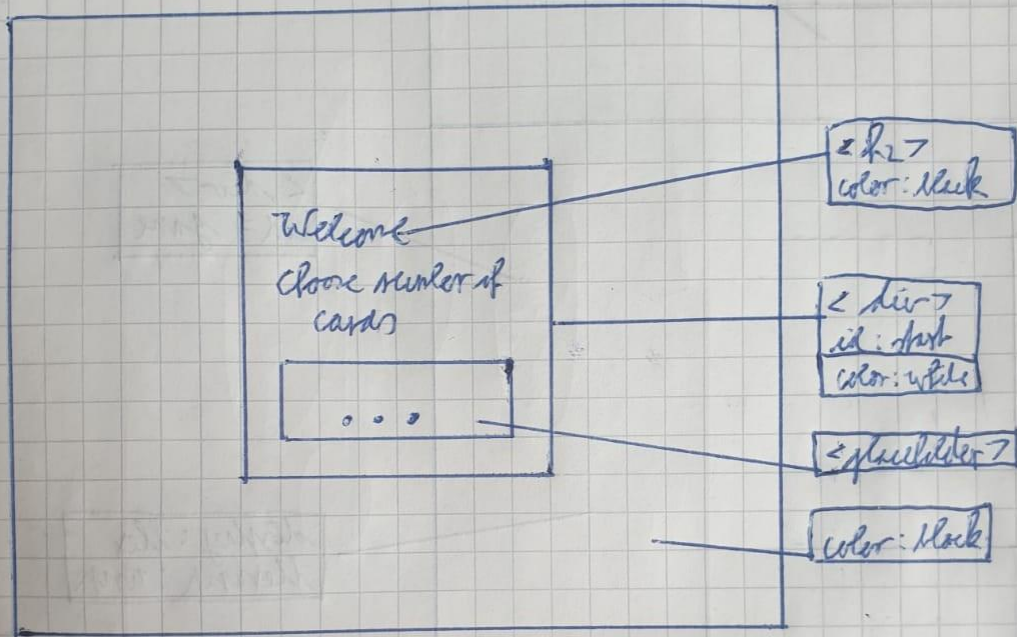 Welcome
Choose number of
cards
...
<h2>
color: black
<div>
id: start
color: white
<placeholder>
color: black